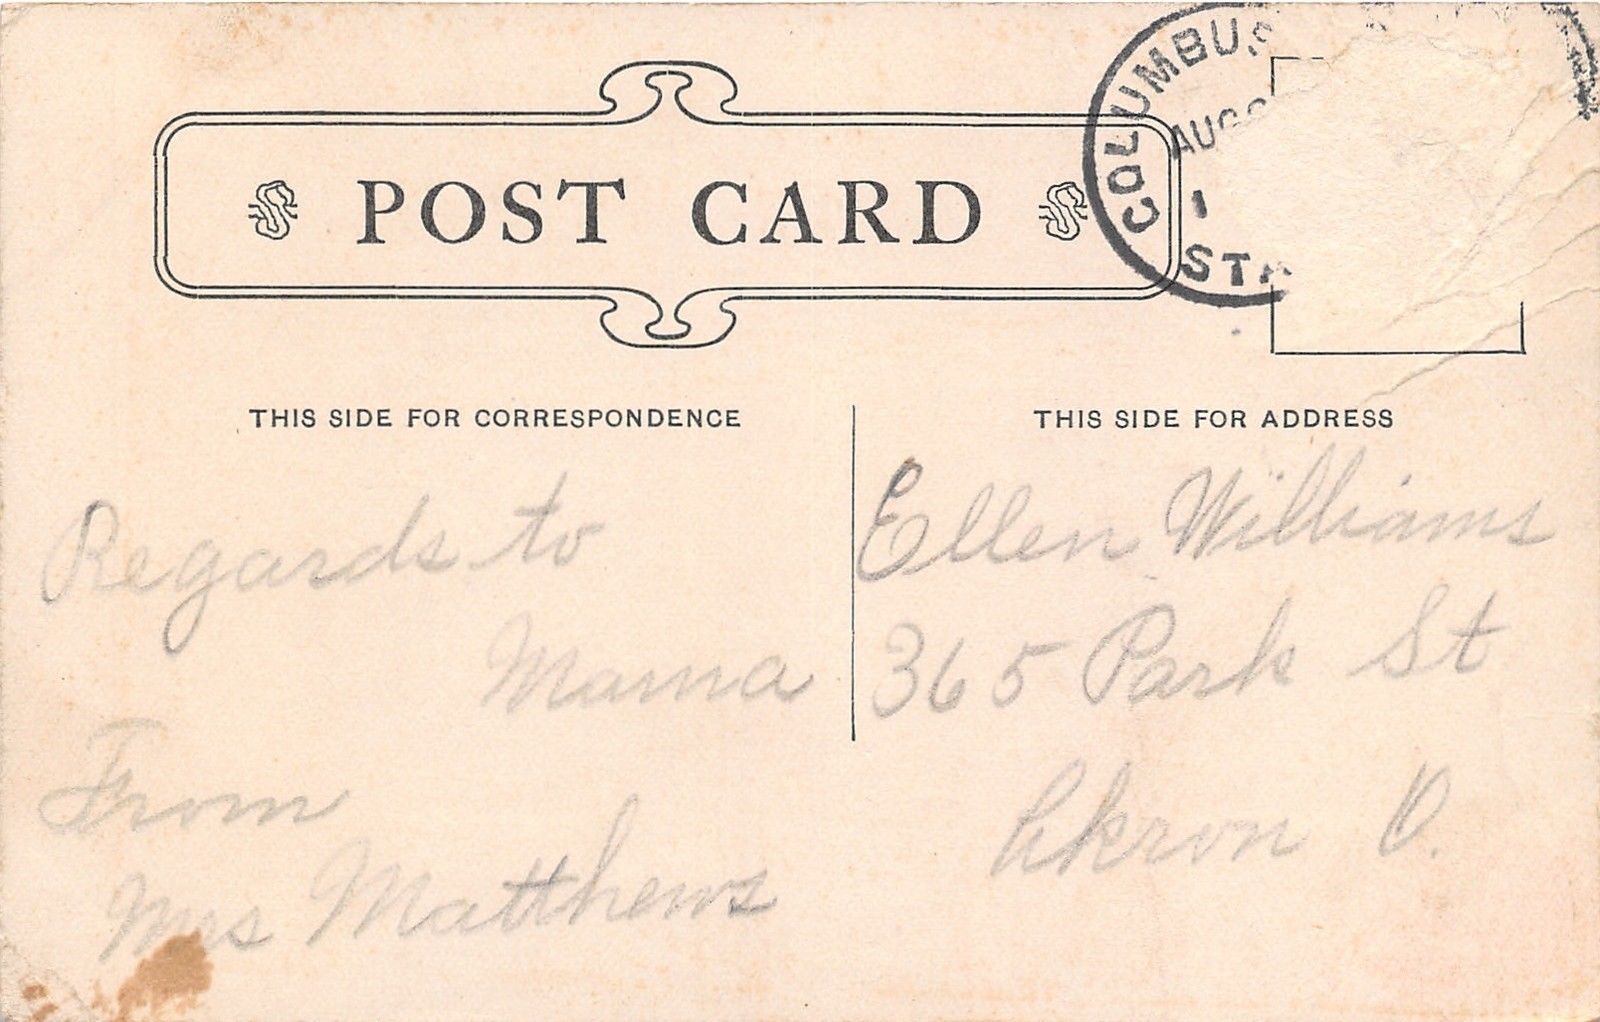 POST CARD
COLUMBUS
AUG
1
STA
THIS SIDE FOR CORRESPONDENCE
THIS SIDE FOR ADDRESS
Regards to
Mama
From
Mrs Matthews
Ellen Williams
365 Park St
Akron O.